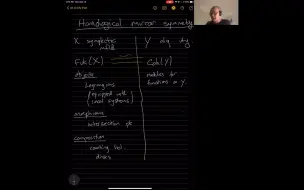 Homological mirror symmetry
X symplectic mfld
Y alg. vty
Fuk(X)
Coh(Y)
objects
modules for functions on Y.
Lagrangians
(equipped with local systems)
morphisms
intersection pts
composition
counting hol. disks